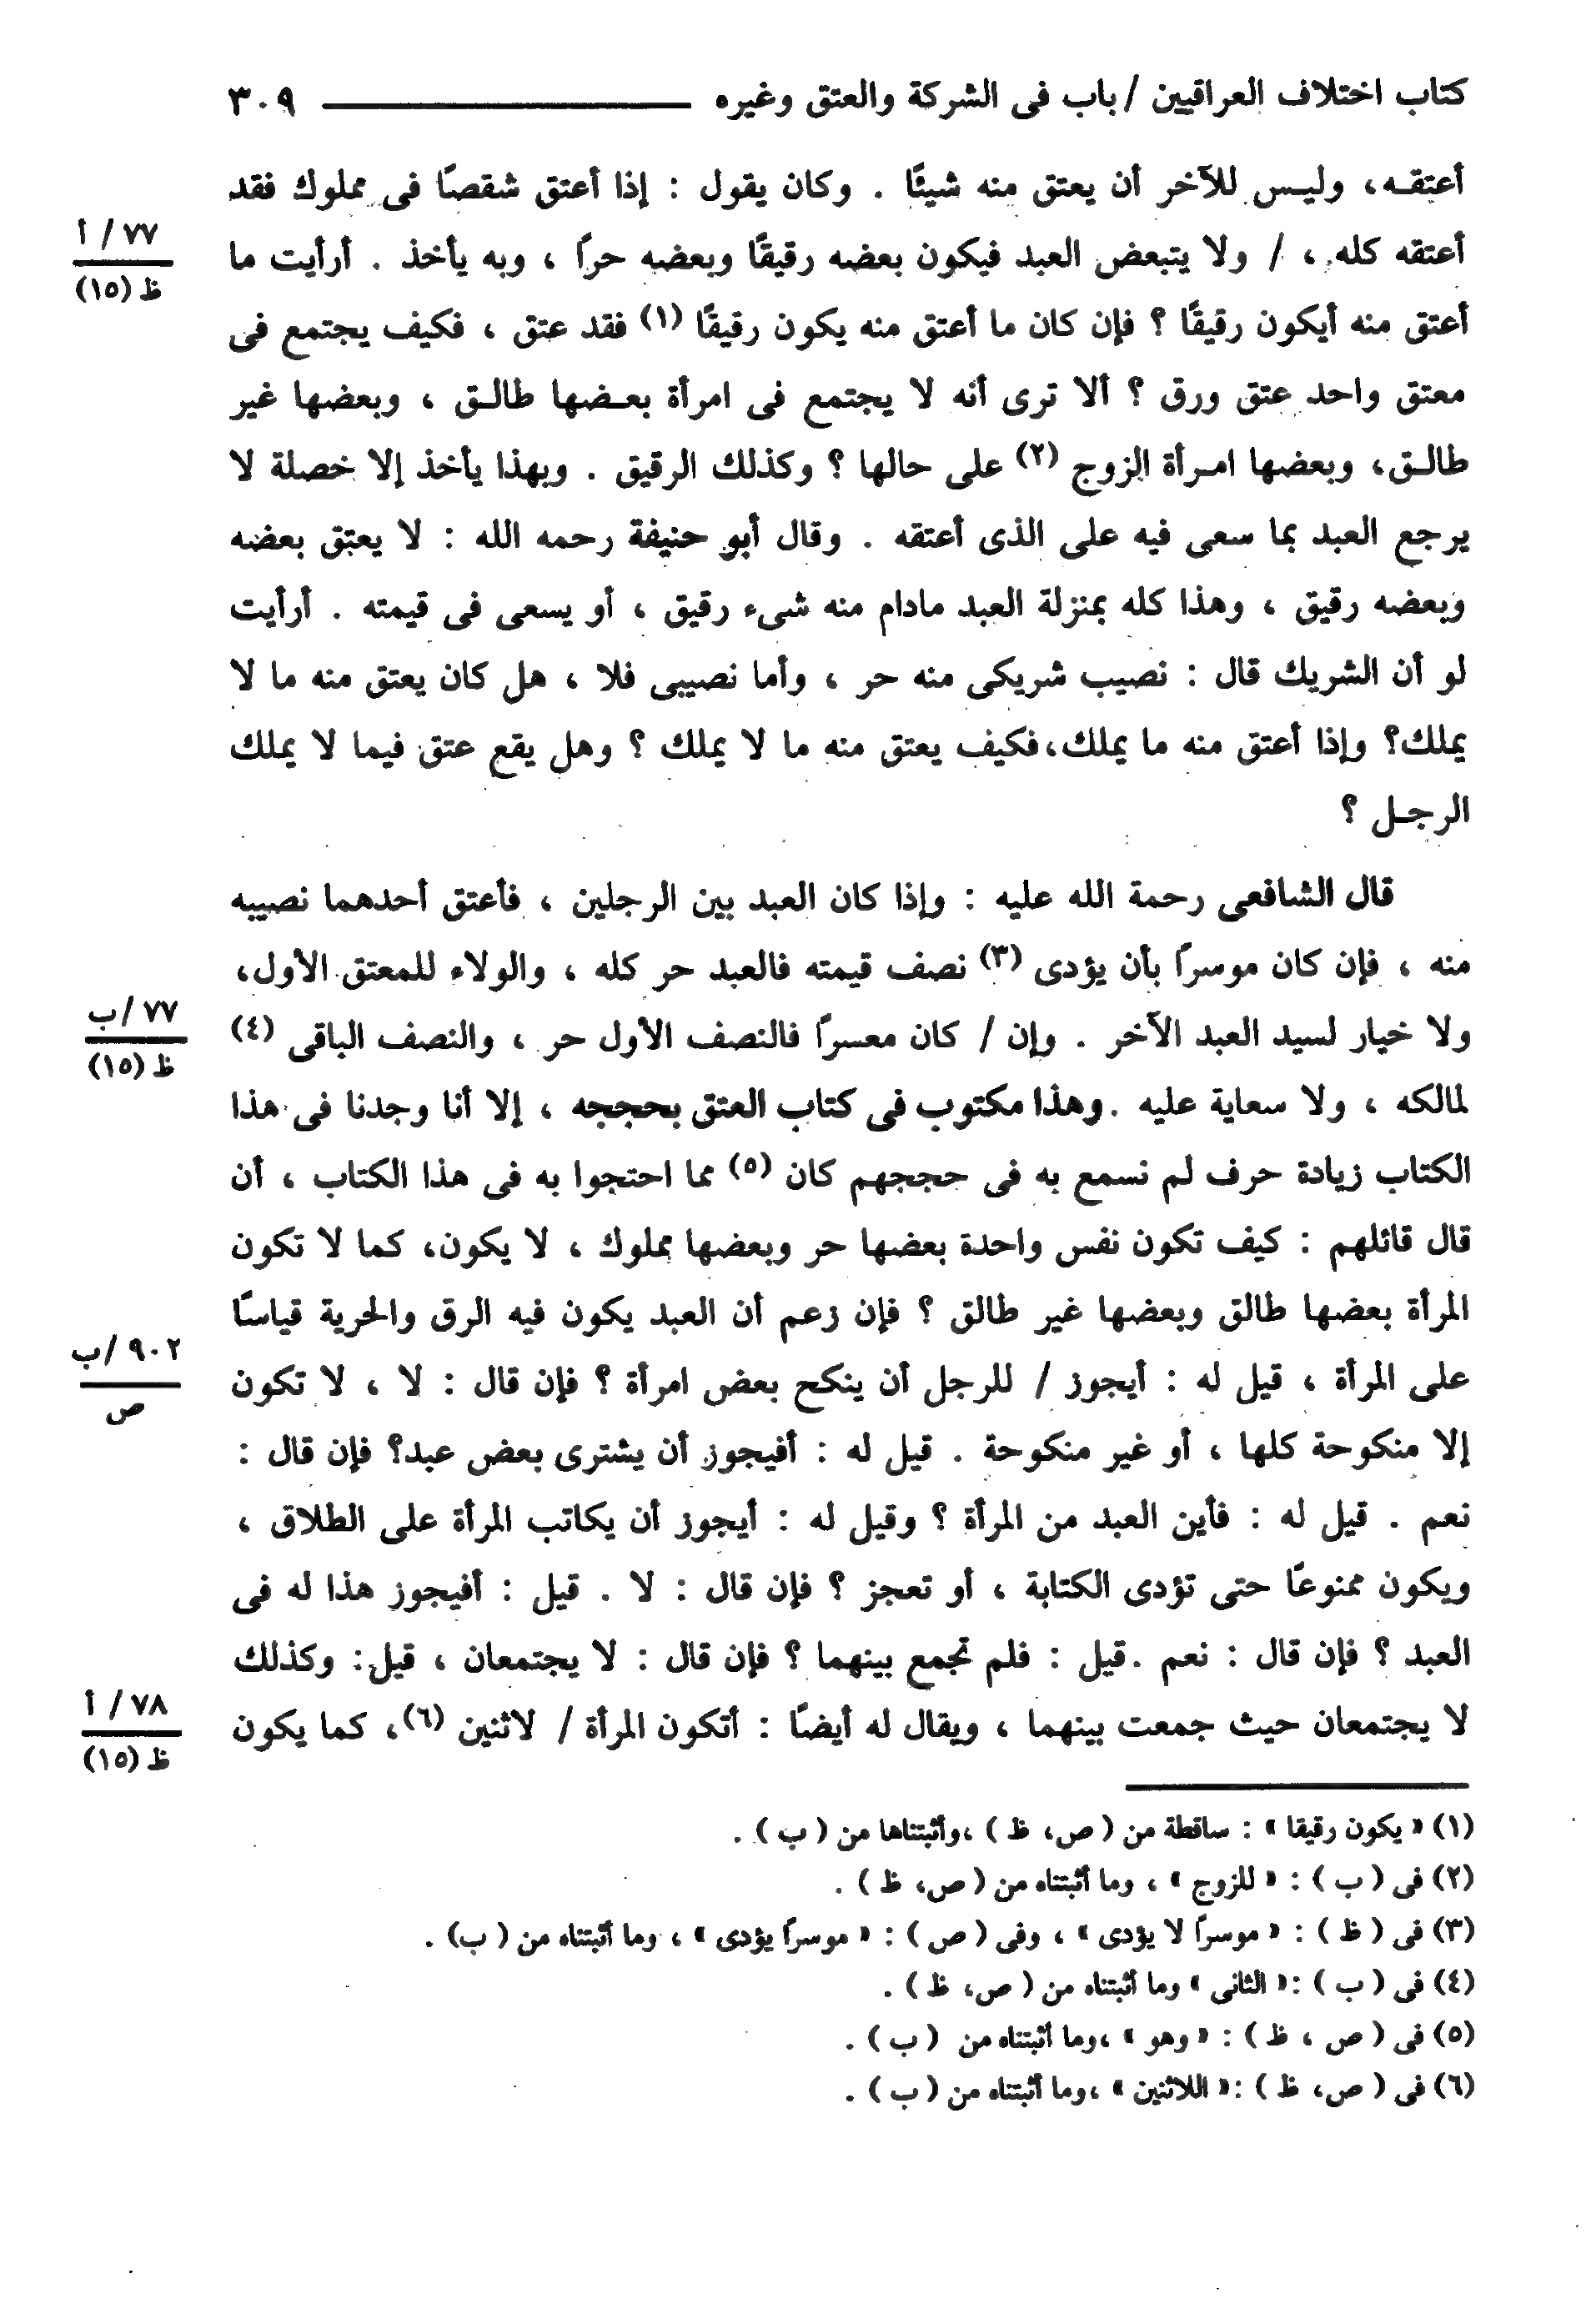 كتاب اختلاف العراقيين / باب فى الشركة والعتق وغيره ٣٠٩
أعتقـه، وليـس للآخر أن يعتق منه شيئًا . وكان يقول : إذا أعتق شقصًا فى مملوك فقد
٧٧/ أ
ظ (١٥)
أعتقه كله ، / ولا يتبعض العبد فيكون بعضه رقيقًا وبعضه حراً ، وبه يأخذ . أرأيت ما
أعتق منه أيكون رقيقًا ؟ فإن كان ما أعتق منه يكون رقيقًا (١) فقد عتق ، فكيف يجتمع فى
معتق واحد عتق ورق ؟ ألا ترى أنه لا يجتمع فى امرأة بعـضها طالـق ، وبعضها غير
طالـق، وبعضها امـرأة الزوج (٢) على حالها ؟ وكذلك الرقيق . وبهذا يأخذ إلا خصلة لا
يرجع العبد بما سعى فيه على الذى أعتقه . وقال أبو حنيفة رحمه الله : لا يعتق بعضه
وبعضه رقيق ، وهذا كله بمنزلة العبد مادام منه شىء رقيق ، أو يسعى فى قيمته . أرأيت
لو أن الشريك قال : نصيب شريكى منه حر ، وأما نصيبى فلا ، هل كان يعتق منه ما لا
يملك؟ وإذا أعتق منه ما يملك،فكيف يعتق منه ما لا يملك ؟ وهل يقع عتق فيما لا يملك
الرجـل ؟
قال الشافعى رحمة الله عليه : وإذا كان العبد بين الرجلين ، فأعتق أحدهما نصيبه
منه ، فإن كان موسراً بأن يؤدى (٣) نصف قيمته فالعبد حر كله ، والولاء للمعتق الأول،
٧٧/ب
ظ (١٥)
ولا خيار لسيد العبد الآخر . وإن / كان معسراً فالنصف الأول حر ، والنصف الباقى (٤)
لمالكه ، ولا سعاية عليه .وهذا مكتوب فى كتاب العتق بحججه ، إلا أنا وجدنا فى هذا
الكتاب زيادة حرف لم نسمع به فى حججهم كان (٥) مما احتجوا به فى هذا الكتاب ، أن
قال قائلهم : كيف تكون نفس واحدة بعضها حر وبعضها مملوك ، لا يكون، كما لا تكون
المرأة بعضها طالق وبعضها غير طالق ؟ فإن زعم أن العبد يكون فيه الرق والحرية قياسًا
٩٠٢/ب
ص
على المرأة ، قيل له : أيجوز / للرجل أن ينكح بعض امرأة ؟ فإن قال : لا ، لا تكون
إلا منكوحة كلها ، أو غير منكوحة . قيل له : أفيجوز أن يشترى بعض عبد؟ فإن قال :
نعم . قيل له : فأين العبد من المرأة ؟ وقيل له : أيجوز أن يكاتب المرأة على الطلاق ،
ويكون ممنوعًا حتى تؤدى الكتابة ، أو تعجز ؟ فإن قال : لا . قيل : أفيجوز هذا له فى
العبد ؟ فإن قال : نعم .قيل : فلم تجمع بينهما ؟ فإن قال : لا يجتمعان ، قيل: وكذلك
٧٨/ أ
ظ (١٥)
لا يجتمعان حيث جمعت بينهما ، ويقال له أيضًا : أتكون المرأة / لاثنين (٦)، كما يكون
(١) « يكون رقيقا » : ساقطة من ( ص، ظ ) ،وأثبتناها من ( ب ) .
(٢) فى ( ب ) : « للزوج » ، وما أثبتناه من ( ص، ظ ) .
(٣) فى ( ظ ) : « موسراً لا يؤدى » ، وفى ( ص ) : « موسراً يؤدى » ، وما أثبتناه من ( ب) .
(٤) فى ( ب ) :« الثانى » وما أثبتناه من ( ص، ظ ) .
(٥) فى ( ص ، ظ ) : « وهو » ،وما أثبتناه من ( ب ) .
(٦) فى ( ص، ظ ) :« اللاثنين » ،وما أثبتناه من ( ب ) .